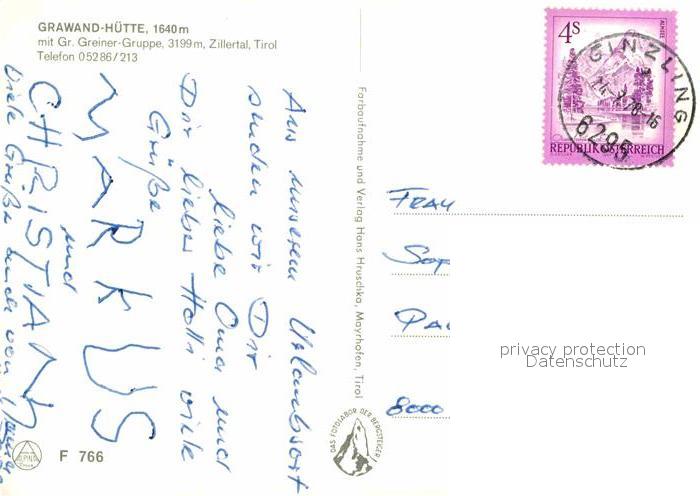 GRAWAND-HÜTTE, 1640 m
mit Gr. Greiner-Gruppe, 3199 m, Zillertal, Tirol
Telefon 0 52 86 / 213
Aus unserem Urlaubsort
senden wir Dir
liebe Oma und
Dir lieber Holli viele
Grüße
MARKUS
und
CHRISTIAN
Viele Grüße auch von
F 766
ALPINA
Farbaufnahme und Verlag Hans Hruschka, Mayrhofen, Tirol
DAS FOTOLABOR DER BERGSTEIGER
4S
ALMSEE
REPUBLIK ÖSTERREICH
GINZLING
6295
FRAU
8000
privacy protection
Datenschutz